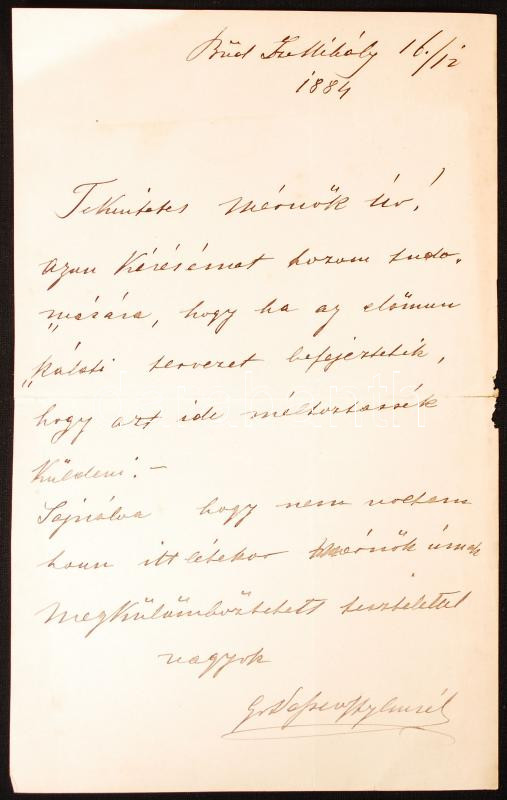 Büd Sz Mihály 16/12
1884
Tekintetes Mérnök Úr!
azon kérésémet hozom tudo„
„mására, hogy ha az előmun
„kálati tervezet befejeztetik,
hogy azt ide méltoztassék
küldeni. –
Sajnálva hogy nem voltam
honn ittlétekor Mérnök úrnak
Megkülömböztetett tisztelettel
vagyok